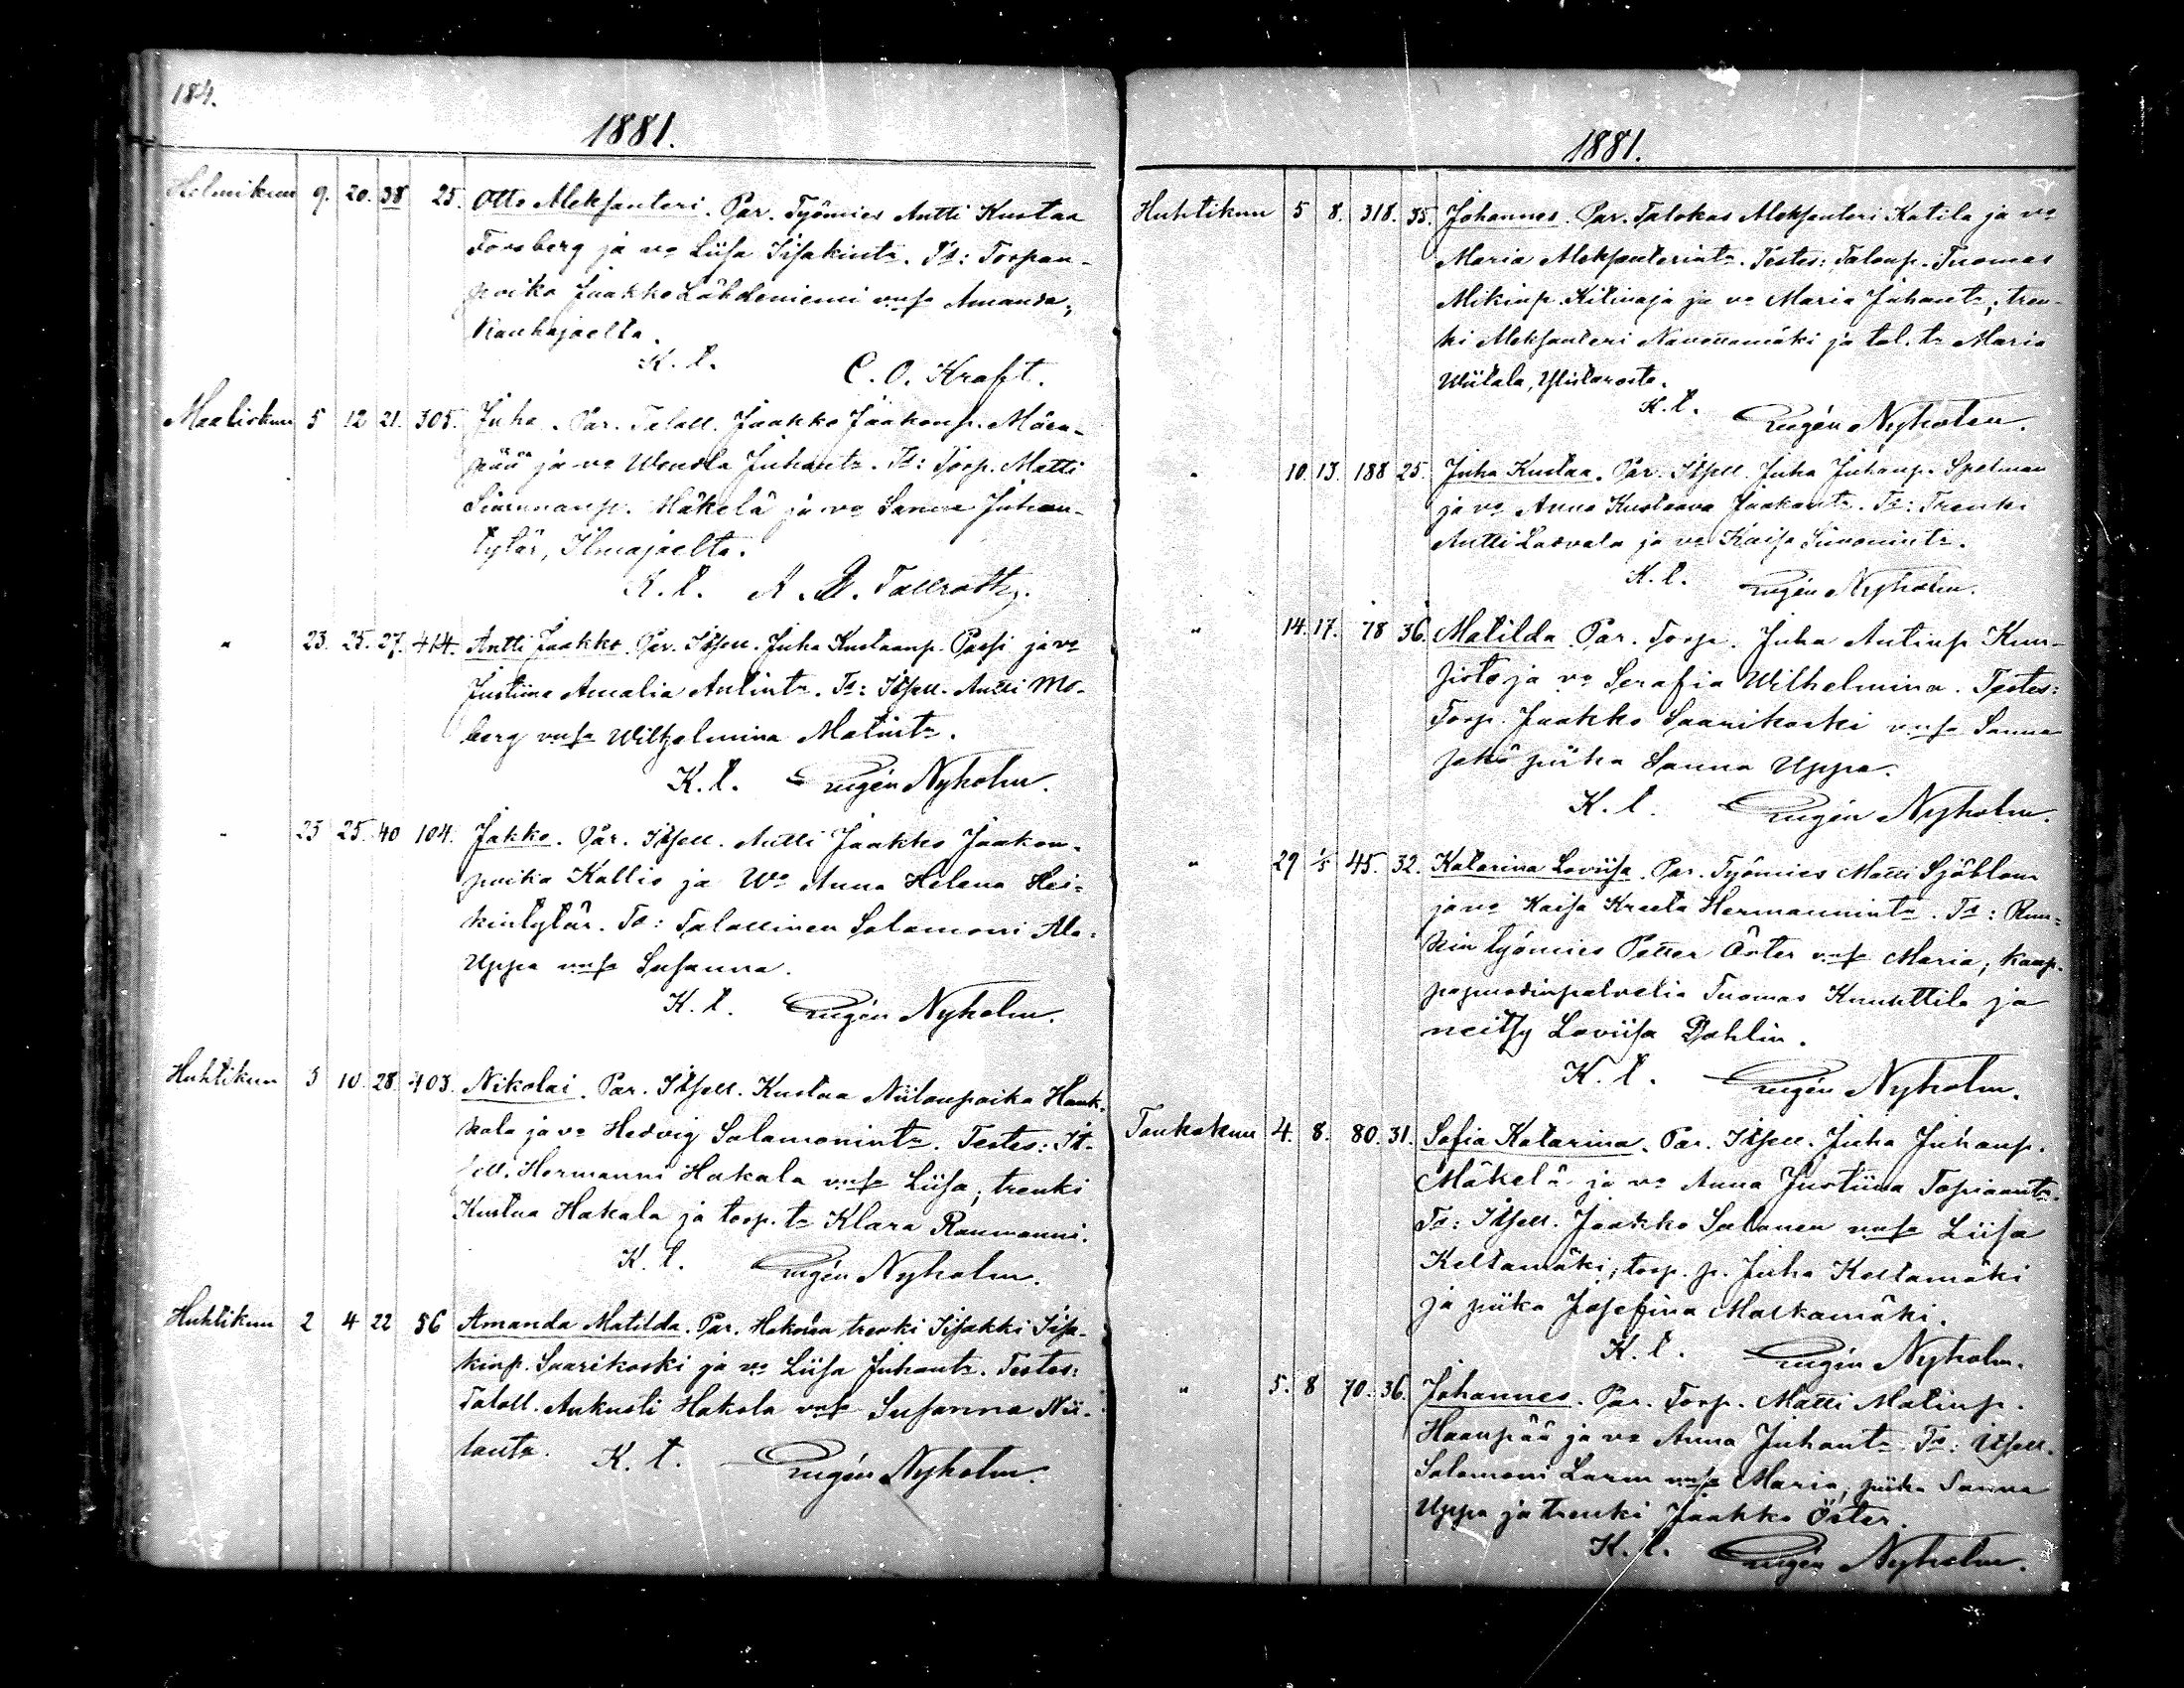 184.
1881.
Helmikuu 9. 20. 38 25. Otto Aleksanteri. Par. Työmies Antti Kustaa
Forsberg ja vo Liisa Iisakintr. Ts: Torpan-
poika Jaakko Lähdeniemi vmsa Amanda,
Kauhajoelta.
K. l. C. O. Kraft.
Maaliskuu 5 12 21. 305. Juha. Par. Talall. Jaakko Jaakonp. Mäen-
pää ja vo Wendla Juhantr. Ts: Torp. Matti
Simunanp. Mäkelä ja vo Sanna Juhan-
tytär, Ilmajoelta.
K. l. Tallroth.
" 23. 25. 27. 414. Antti Jaakko. Par. Itsell. Juha Kustaanp. Passi ja vo
Justiina Amalia Antintr. Ts: Itsell. Antti Mo-
berg vmsa Wilhelmina Matintr.
K. l. Eugén Nyholm.
" 23 25. 40 104. Jakko. Par. Itsell. Antti Jaakko Jaakon-
poika Kallio ja Wo Anna Helena Hei-
kintytär. Ts: Talollinen Salamoni Ala-
Uppa vmsa Susanna.
K. l. Eugén Nyholm.
Huhtikuu 3 10 28. 403. Nikolai. Par. Itsell. Kustaa Niilonpoika Hauk-
kala ja vo Hedvig Salamonintr. Testes: It-
sell. Hermanni Hakala vmsa Liisa; trenki
Kustaa Hakala ja torp. tr Klara Raumanni.
K. l. Eugén Nyholm.
Huhtikuu 2 4 22 56 Amanda Matilda. Par. Hakolan trenki Iisakki Iisa-
kinp. Saarikoski ja vo Liisa Juhantr. Testes:
Taloll. Aukusti Hakola vmsa Susanna Nii-
lontr. K. l. Eugén Nyholm.
1881.
Huhtikuu 5 8. 318. 35. Johannes. Par. Talokas Aleksanteri Katila ja vo
Maria Aleksanterintr. Testes: Talonp. Tuomas
Mikinp. Kitinoja ja vo Maria Juhantr; tren-
ki Aleksanteri Navettamäki ja tal. tr Maria
Wiitala, Ylistarosta.
K. l. Eugén Nyholm.
" 10. 13. 188 25. Juha Kustaa. Par. Itsell. Juha Juhanp. Spelman
ja vo Anna Kustaava Jaakontr. Ts: Trenki
Antti Ladvala ja vo Kaisa Simonintr.
K. l. Eugén Nyholm.
" 14. 17. 78 36. Matilda. Par. Torp. Juha Antinp. Kuu-
sisto ja vo Serafia Wilhelmina. Testes:
Torp. Jaakko Saarikoski vmsa Sanna
sekä piika Sanna Uppa.
K. l. Eugén Nyholm.
" 29 1/5 45. 32. Katarina Loviisa. Par. Työmies Matti Sjöblom
ja vo Kaisa Kreeta Hermannintr. Ts: Ruu-
kin työmies Petter Öster vmsa Maria; kaup-
papuodinpalvelia Tuomas Knuuttila ja
neitsy Loviisa Dahlin.
K. l. Eugén Nyholm.
Toukokuu 4. 8. 80. 31. Sofia Katarina. Par. Itsell. Juha Juhanp.
Mäkelä ja vo Anna Justiina Topiaantr.
Ts: Itsell. Jaakko Salonen vmsa Liisa
Keltamäki; torp. p. Juha Keltamäki
ja piika Josefina Malkamäki.
K. l. Eugén Nyholm.
" 5. 8 70. 36. Johannes. Par. Torp. Matti Matinp.
Haanpää ja vo Anna Juhantr. Ts: Itsell.
Salomoni Lurm vmsa Maria, piika Sanna
Uppa ja trenki Jaakko Öster.
K. l. Eugén Nyholm.